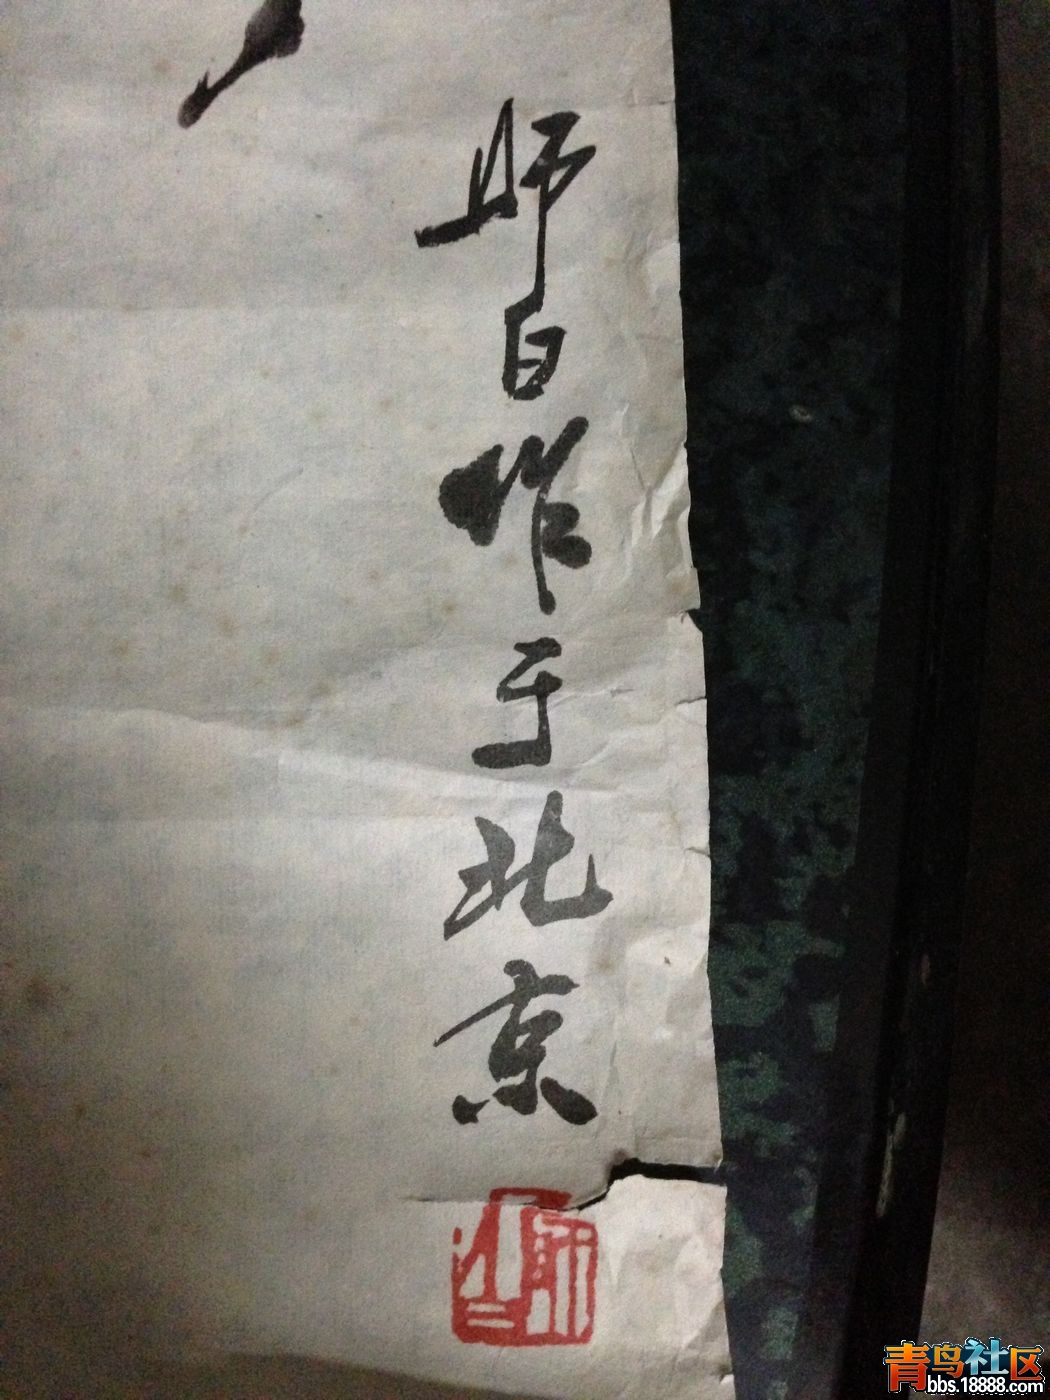 师白作于北京
青鸟社区
bbs.18888.com